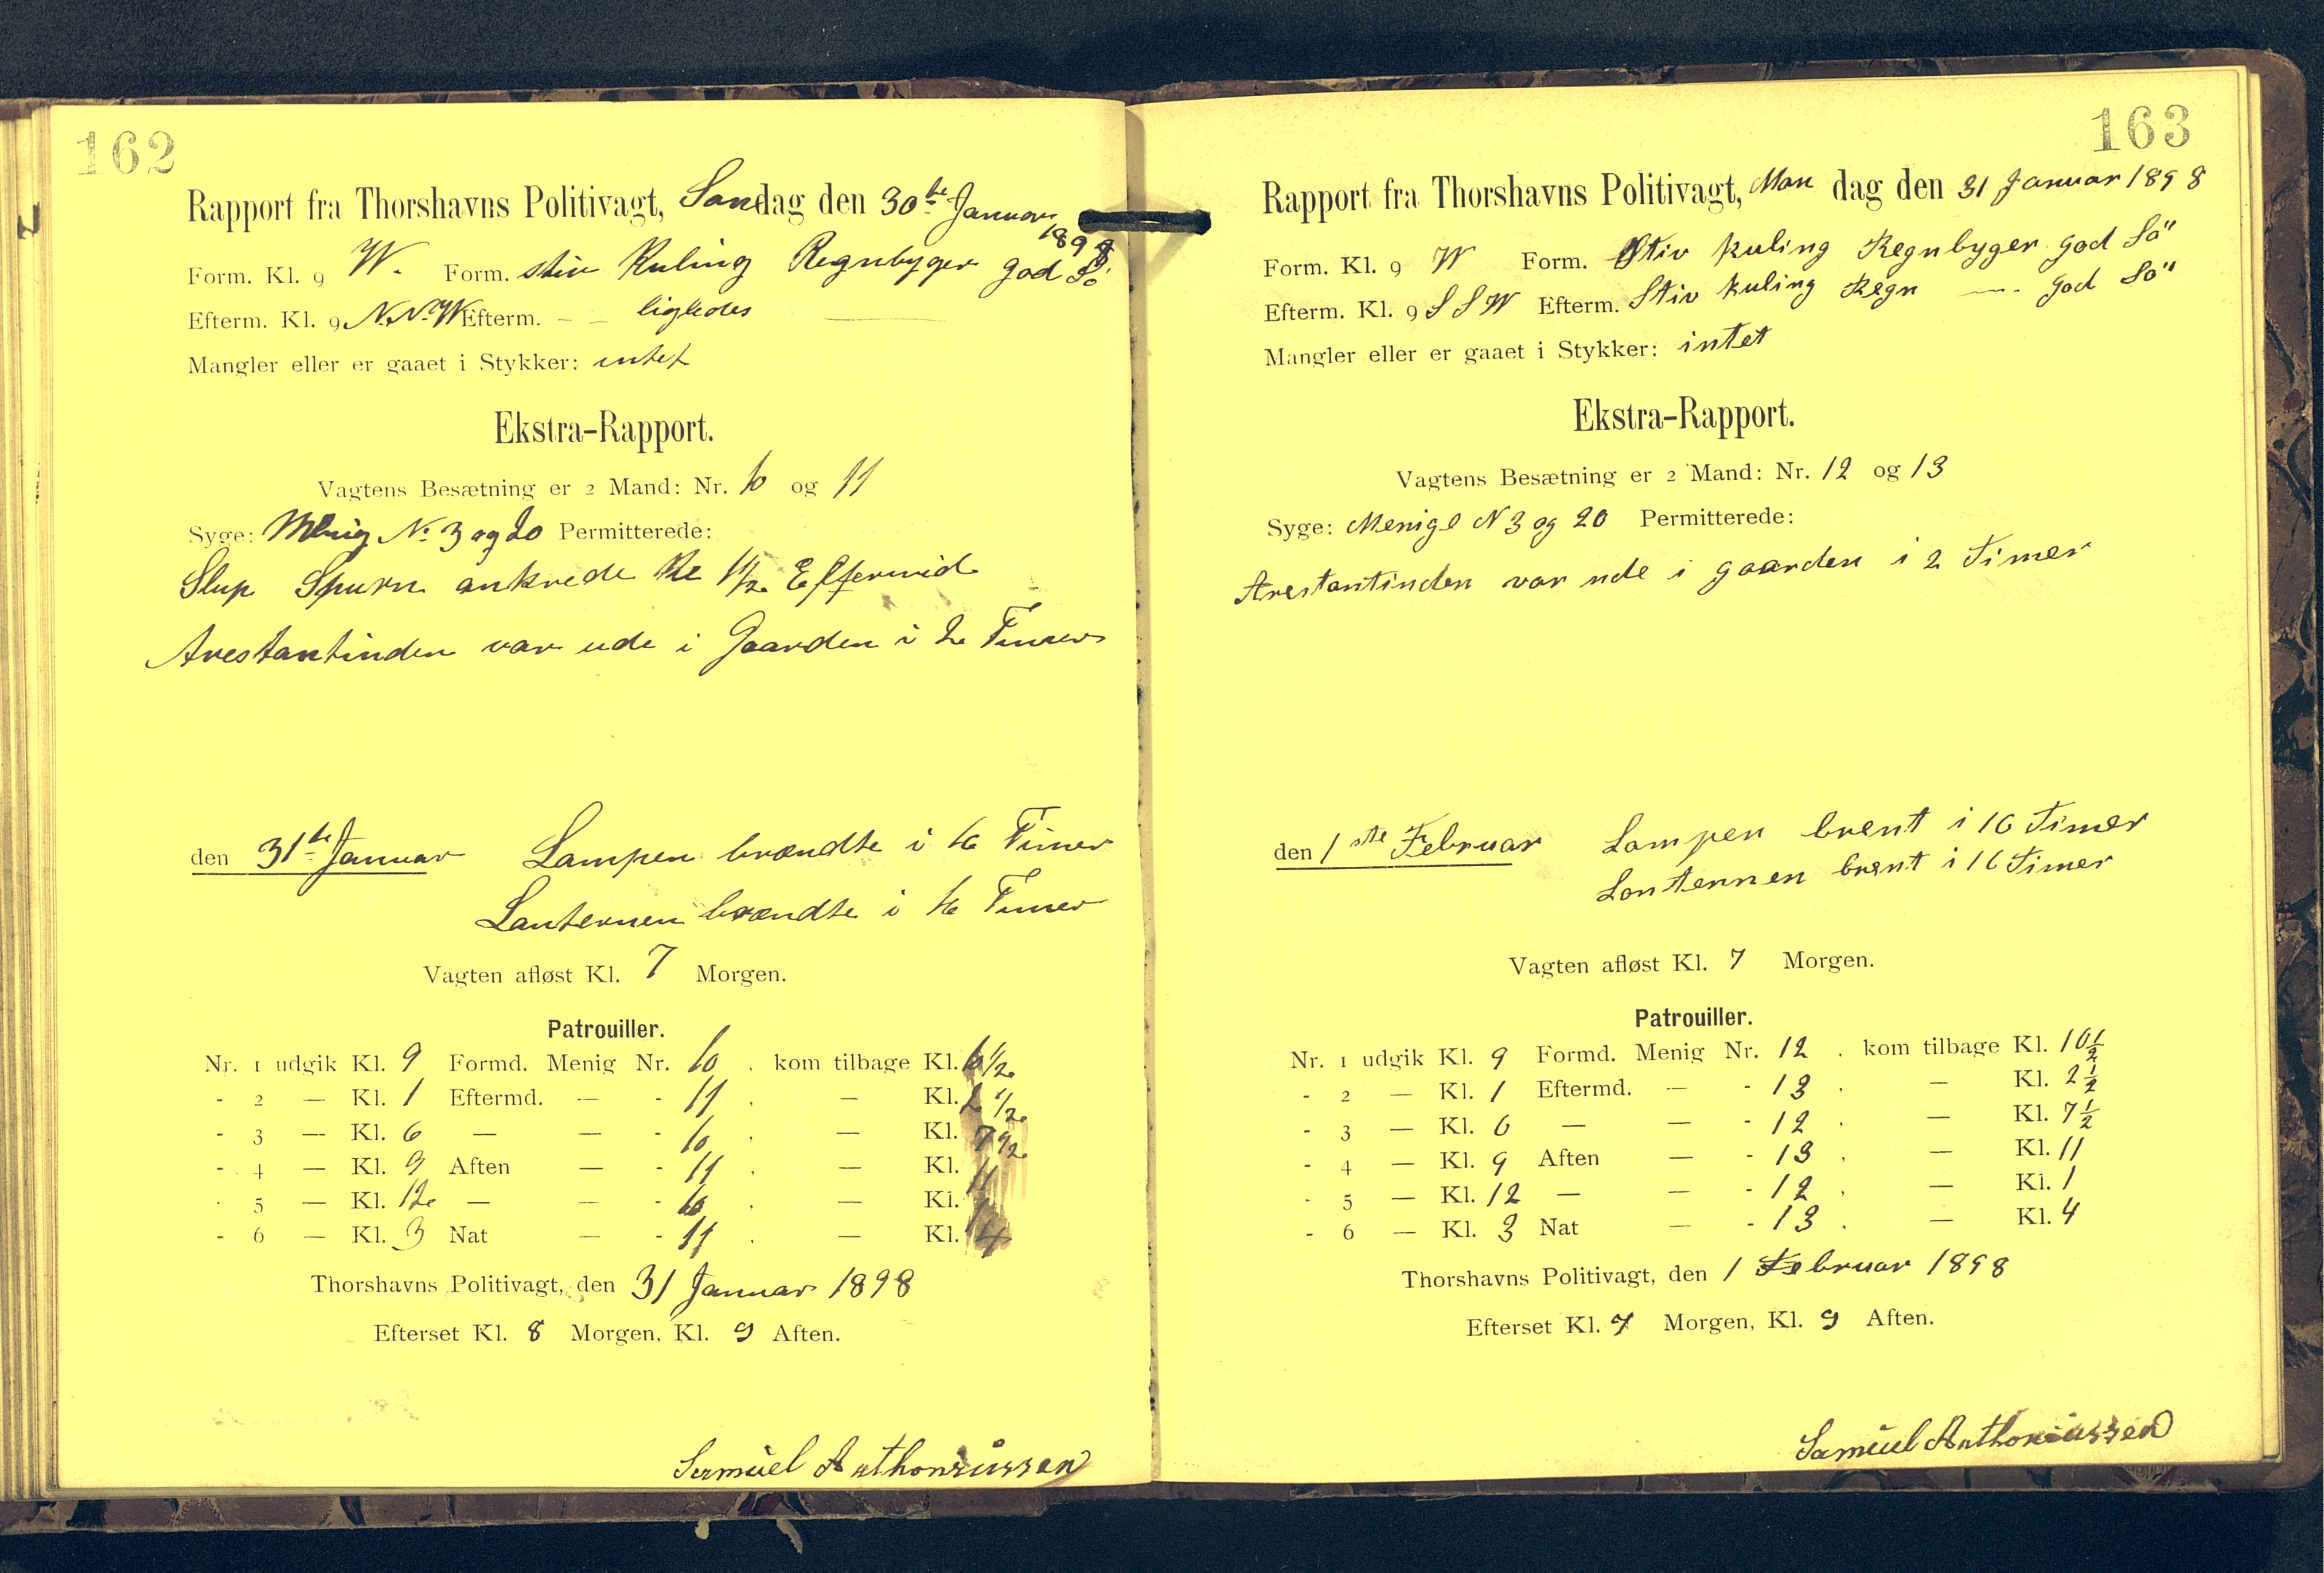 162
Rapport fra Thorshavns Politivagt, Søndag den 30te Januar 1898
Form. Kl. 9 W. Form. stiv Kuling Regnbyger god Sö
Efterm. Kl. 9 N.N.W Efterm. – – ligledes —
Mangler eller er gaaet i Stykker: intet
Ekstra-Rapport.
Vagtens Besætning er 2 Mand: Nr. 10 og 11
Syge: Menig No 3 og 20 Permitterede:
Slup Spurn ankrede Kl 1 1/2 Eftermid
Arestantinden var ude i Gaarden i 2 Timer
den 31te Januar Lampen brændte i 16 Timer
Lanternen brændte i 16 Timer
Vagten afløst Kl. 7 Morgen.
Patrouiller.
Nr. 1 udgik Kl. 9 Formd. Menig Nr. 10 . kom tilbage Kl. 10 1/2
- 2 — Kl. 1 Eftermd. — - 11 . — Kl. 2 1/2
- 3 — Kl. 6 — — - 10 . — Kl. 7 1/2
- 4 — Kl. 9 Aften — - 11 . — Kl. 11
- 5 — Kl. 12 — — - 10 . — Kl. 1
- 6 — Kl. 3 Nat — - 11 . — Kl. 4
Thorshavns Politivagt, den 31 Januar 1898
Efterset Kl. 8 Morgen, Kl. 9 Aften.
Samuel Anthoniussen
163
Rapport fra Thorshavns Politivagt, Man dag den 31 Januar 1898
Form. Kl. 9 W Form. Stiv kuling Regnbyger god Sö
Efterm. Kl. 9 S S W Efterm. Stiv kuling Regn — god Sö
Mangler eller er gaaet i Stykker: intet
Ekstra-Rapport.
Vagtens Besætning er 2 Mand: Nr. 12 og 13
Syge: Menige N 3 og 20 Permitterede:
Arestantinden var ude i gaarden i 2 Timer
den 1ste Februar Lampen brent i 16 Timer
Lanternen brent i 16 Timer
Vagten afløst Kl. 7 Morgen.
Patrouiller.
Nr. 1 udgik Kl. 9 Formd. Menig Nr. 12 . kom tilbage Kl. 10 1/2
- 2 — Kl. 1 Eftermd. — - 13 . — Kl. 2 1/2
- 3 — Kl. 6 — — - 12 . — Kl. 7 1/2
- 4 — Kl. 9 Aften — - 13 . — Kl. 11
- 5 — Kl. 12 — — - 12 . — Kl. 1
- 6 — Kl. 3 Nat — - 13 . — Kl. 4
Thorshavns Politivagt, den 1 Februar 1898
Efterset Kl. 7 Morgen, Kl. 9 Aften.
Samuel Anthoniussen